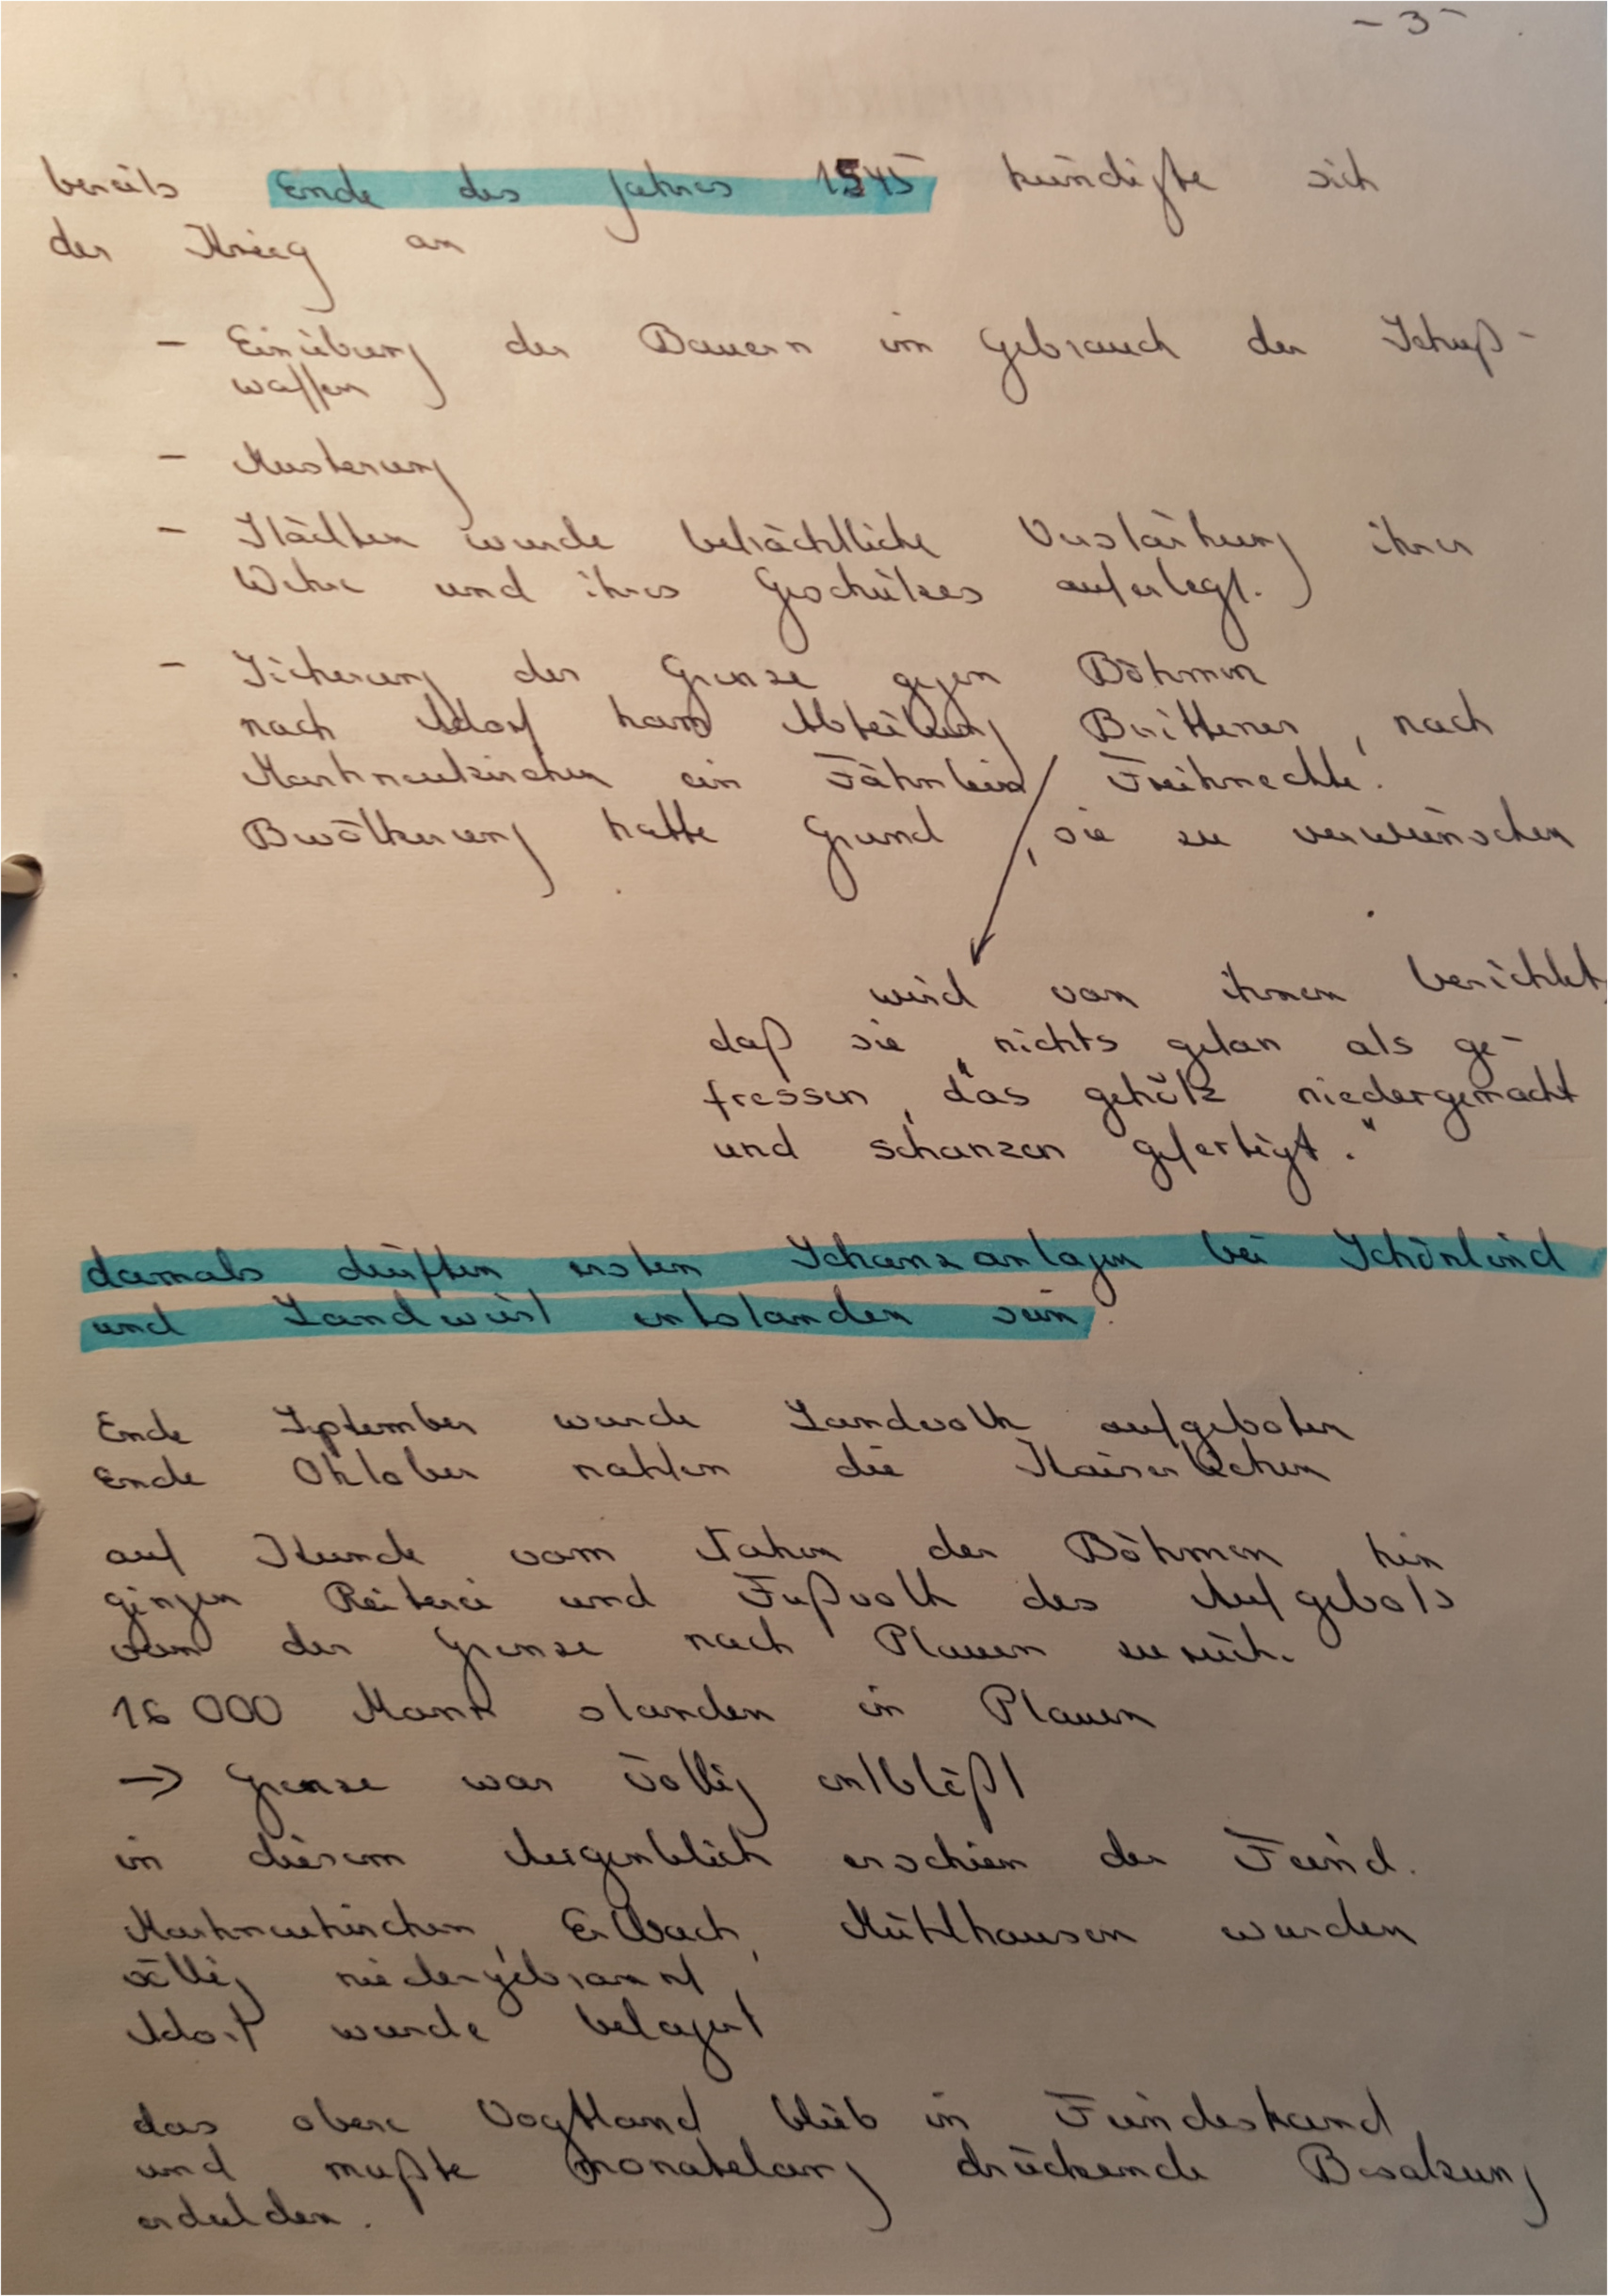 - 3 -
bereits Ende des Jahres 1545 kündigte sich
der Krieg an
- Einübung der Bauern im Gebrauch der Schuß-
waffen
- Musterung
- Städten wurde beträchtliche Verstärkung ihrer
Wehre und ihres Geschützes auferlegt.
- Sicherung der Grenze gegen Böhmen
nach Adorf kam Abteilung Berittener, nach
Markneukirchen ein Fähnlein Freiknechte.
Bevölkerung hatte Grund, sie zu verwünschen
wird von ihnen berichtet,
daß sie „nichts getan als ge-
fressen, das gehölz niedergemacht
und schanzen gefertigt."
damals dürften ersten Schanzanlagen bei Schönlind
und Landwüst entstanden sein.
Ende September wurde Landvolk aufgeboten
Ende Oktober nahten die Kaiserlichen
auf Kunde vom Nahen der Böhmen hin
gingen Reiterei und Fußvolk des Aufgebots
von der Grenze nach Plauen zurück.
16 000 Mann standen in Plauen
→ Grenze war völlig entblößt
in diesem Augenblick erschien der Feind.
Markneukirchen, Erlbach, Mühlhausen wurden
völlig niedergebrannt,
Adorf wurde belagert
das obere Vogtland blieb in Feindeshand
und mußte monatelang drückende Besatzung
erdulden.